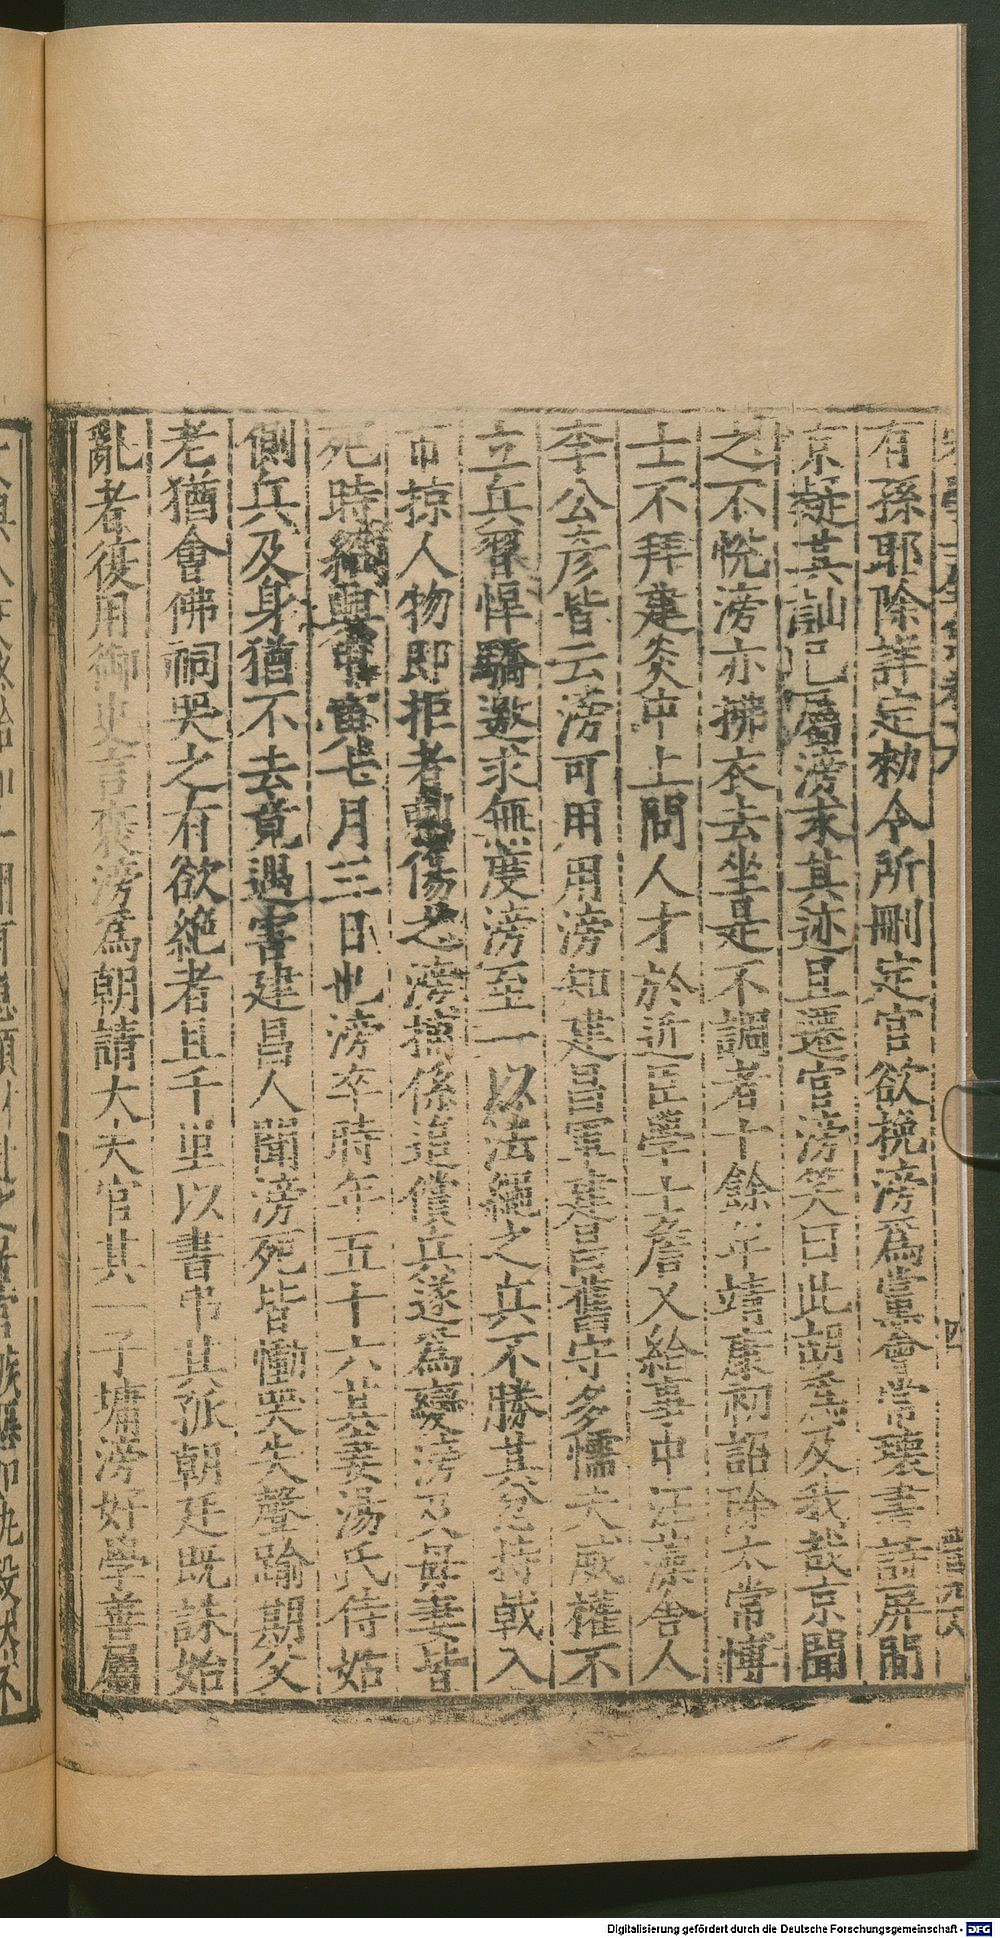 有孫耶除詳定勑令所刪定官欲挽滂爲黨會常壊書詩屏間
京疑其訕已屬滂求其迹且遷官滂笑曰此胡爲及我哉京聞
之不悅滂亦拂衣去坐是不調者十餘年靖康初詔除太常博
士不拜建炎中上問人才於近臣學士詹又給事中汪藻舍人
李公彦皆云滂可用用滂知建昌軍建昌舊守多懦夫威權不
立兵習悍驕邀求無度滂至一以法繩之兵不勝其忿持戟入
市掠人物即拒者傷之滂捕係追償兵遂爲變滂及母妻皆
死時紹興七月三日也滂卒時年五十六其妻湯氏侍姑
側兵及身猶不去竟遇害建昌人聞滂死皆慟哭失聲踰期父
老猶會佛祠哭之有欲絶者且千里以書弔其孤朝廷既誅始
亂者復用御史言褒滂爲朝請大夫官其一子墉滂好學善屬
四
Digitalisierung gefördert durch die Deutsche Forschungsgemeinschaft - DFG